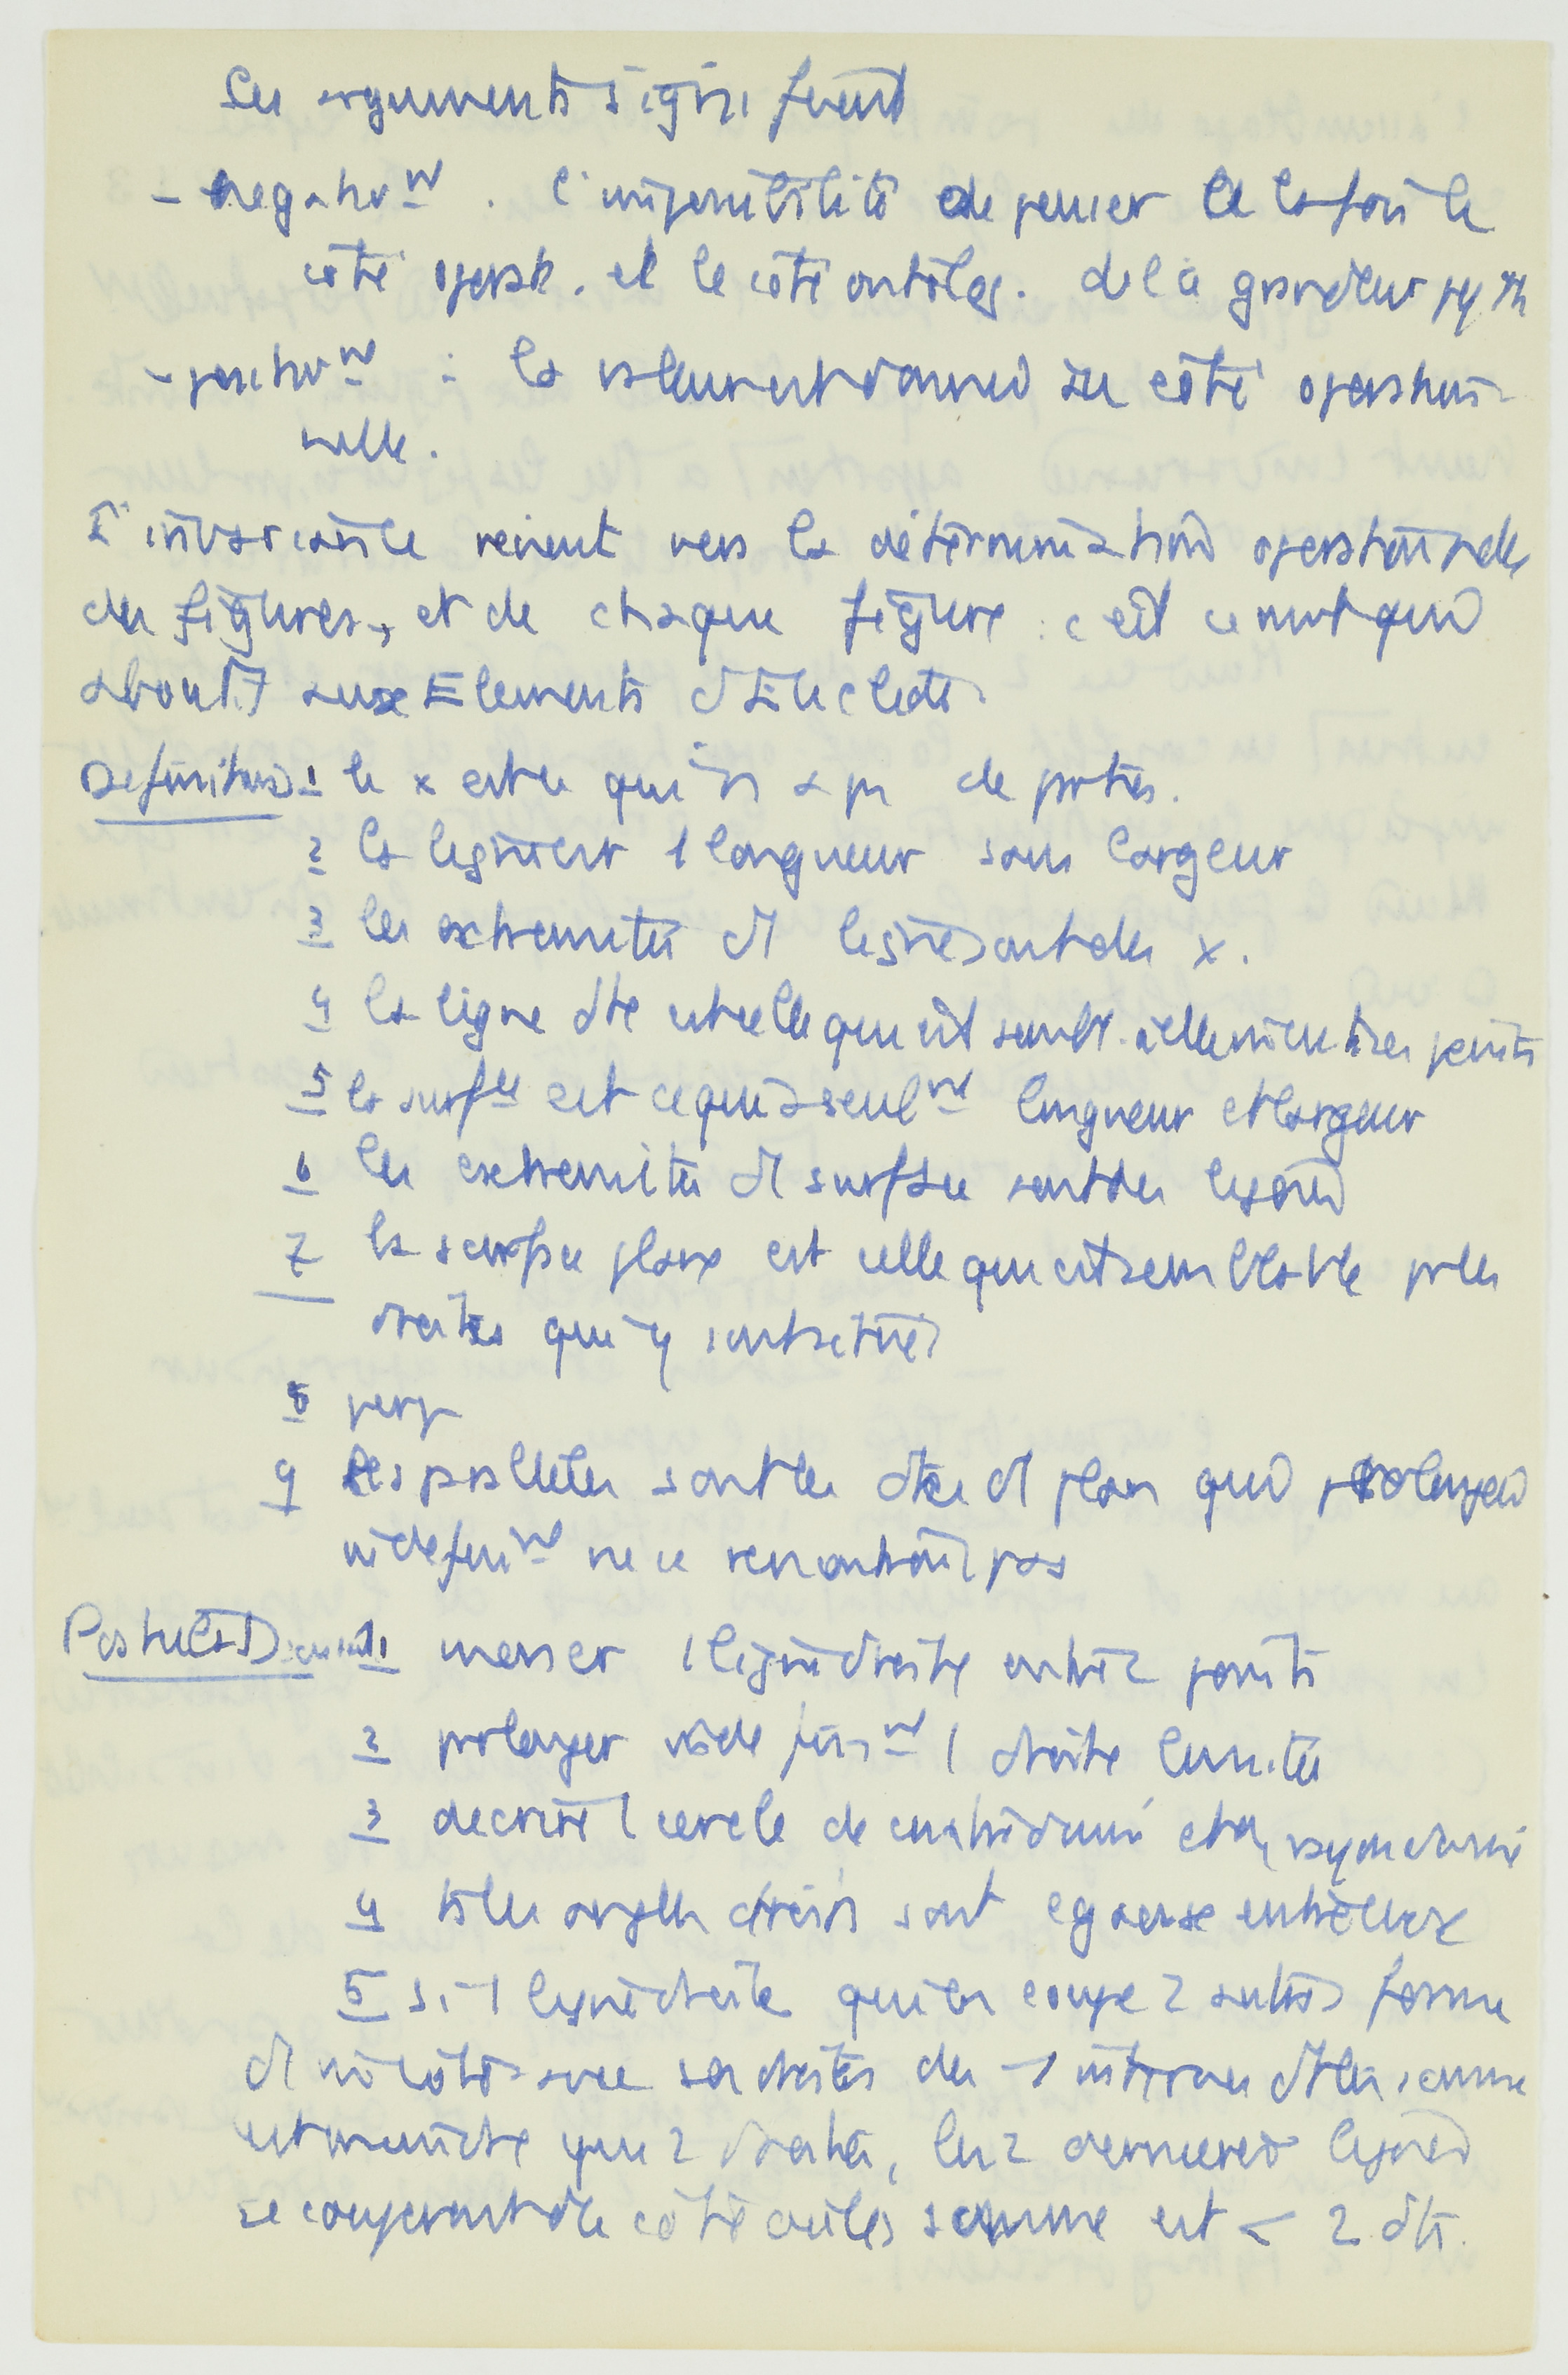 Les arguments signifient
- negativ^mt . l'impossibilité de penser à la fois le
côté operat. et le côté ontolog. de la grandeur pyth
- positiv^mt : la valeur est donnée au côté operation-
nelle.
L'invariance revient vers la détermination operationnelle
des figures, et de chaque figure : c'est ce mvt qui
aboutit aux Elements d'Euclide.
Definitions 1 le x est ce qui n'a pas de parties.
2 la ligne est 1 longueur sans largeur
3 les extremités d'1 ligne sont des x.
4 la ligne dte est celle qui est sembl. à ses points
5 la surf^ce est ce qui a seul^mt longueur et largeur
6 les extremités d'1 surface sont des lignes
7 la surface plane est celle qui est semblable pr les
droites qui y sont situées
8 perp
9 les paralleles sont les dtes d'1 plan qui prolongées
indefini^mt ne se rencontrent pas
Postulats 1 mener 1 ligne droite entre 2 points
2 prolonger indefini^mt 1 droite limitée
3 decrire 1 cercle de centre donné et de rayon donné
4 ts les angles droits sont egaux entre eux
5 si 1 ligne droite qui en coupe 2 autres forme
d'1 même côté avec ces droites des internes dt la somme
est moindre que 2 droits, les 2 dernieres lignes
se couperont du côté où la somme est < 2 dts.